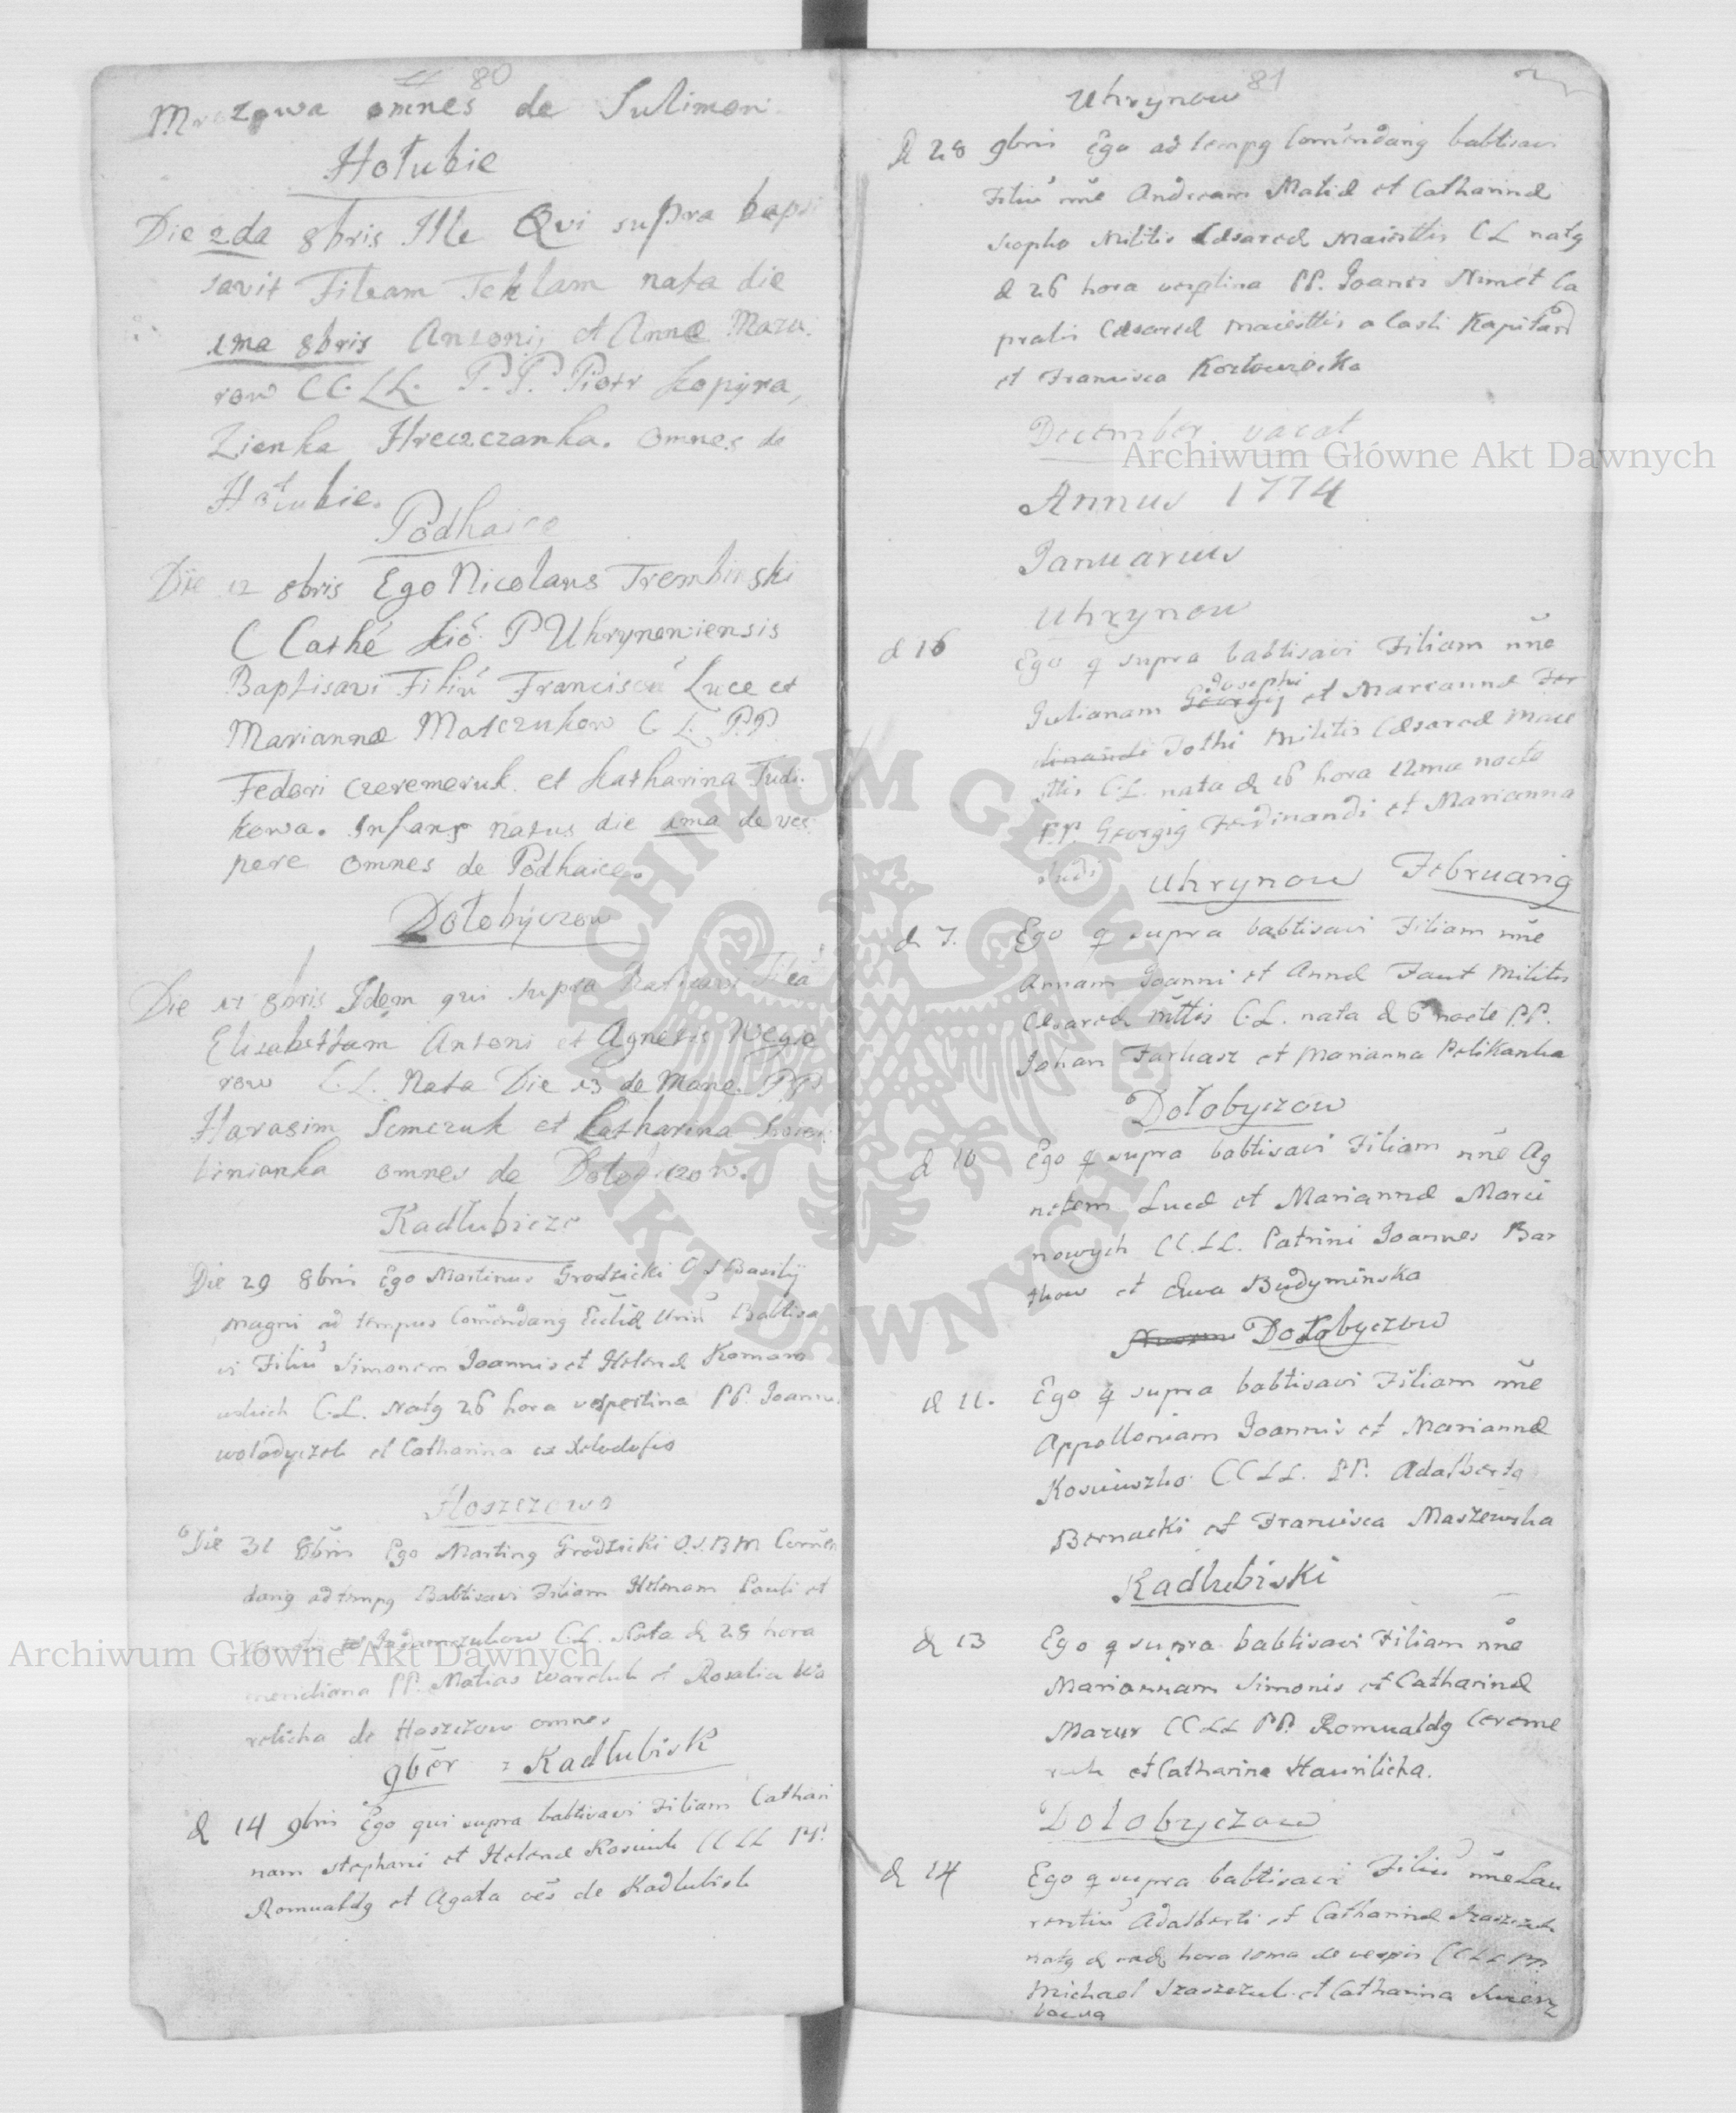 80
omnes de Sulimon
Hołubie
Die 2da 8bris Ille Qui supra bapti
savit Filiam Teklam nata die
1ma 8bris Antonij et Annæ Mazu
row CC. LL. P.P. Piotr Kopyra,
Zienka Hreczczanka. omnes de
Hołubie.
Podhaice
Die 12 8bris Ego Nicolaus Trembinski
C Cathé P Uhrynowiensis
Baptisavi Filiú Franciscú Luce et
Mariannæ Matczukow C. L. P.P
Fedori Czeremeruk et Katharina Judi
kowa. Infans natus die 1ma de ves
pere omnes de Podhaice.
Dołobyczow
Die 8bris Idem qui supra
Elisabettam Antoni et Agnetis Węgie
row C. L. Nata Die 13 de Mane. P.P
Harasim Semczuk et Katharina
linianka omnes de Dołobiczow.
Kadłubicze
Die 29 8bris Ego Martinus Grodzicki O S Basilij
magni ad tempus Coméndang Babtisa
vi Filiú Simonem Joannis et Helenæ Komaro
wskich C.L. natg 26 hora vespertina PP. Joannes
wolodyczek et Catharina
Hoszczowo
Die 31 8bris Ego Marting Grodzicki O.S.B.M Comén
dang ad tempg Babtisavi Filiam Helenam Pauli et
Jadamczukow C.L. Nata d 28 hora
meridiana PP. Matias Warchuk et Rosalia Wa
relicha de Hoszczow omnes
9bēr : Kadłubisk
d 14 9bris Ego qui supra babtisavi Filiam Cathari
nam Stephani et Helenæ Kosciuk CC LL PP.
Romualdg et Agata oēs de Kadłubisk
81
Uhrynow
d 28 9bris Ego ad tempg Coméndang babtisavi
Filiú nne Andream Matiæ et Catharinæ
Militis Cæsareæ Maiesttis CL natg
d 26 hora vespetina PP. Joanes Nimet Ca
pralis Cæsareæ maiesttis a Kapitan
et Francisca Kozłowska
December vacat
Annus 1774
Januarius
Uhrynow
d 16 Ego q supra babtisavi Filiam nne
Josephi
Julianam Georgij et Mareannæ Fer
dinandi Tothi Militis Cæsareæ Maie
sttis C.L. nata d 16 hora 12ma nocte
PP. Georgig Ferdinandi et Marianna
Judi
Uhrynow Februarig
d 7. Ego q supra babtisavi Filiam nne
Annam Joanni et Annæ Faut Militis
Cesareæ mttis C.L. nata d 6 nocte P.P.
Johan Farkasz et Marianna Pelikanka
Dołobyczow
d 10 Ego q supra babtisavi Filiam nne Ag
netem Lucæ et Mariannæ Marci
nowych CC.LL. Patrini Joannes Bar
thow et Ewa Budyminska
Dołobyczow
d 11. Ego q supra babtisavi Filiam nne
Appolloniam Joannis et Mariannæ
Kosciuszko CC LL. PP. Adalbertg
Bernacki et Francisca Maszewska
Kadlubiski
d 13 Ego q supra babtisavi Filiam nne
Mariannam Simonis et Catharinæ
Mazur CC LL PP. Romualdg Cereme
ruk et Catharina Hawrilicha.
Dolobyczow
d 14 Ego q supra babtisavi Filiú nne Lau
rentiú Adalberti et Catharinæ Szaszczuk
natg d hora de vespis CC LL PP.
Michael Szaszczuk et Catharina
Archiwum Główne Akt Dawnych
Archiwum Główne Akt Dawnych
ARCHIWUM GŁÓWNE AKT DAWNYCH